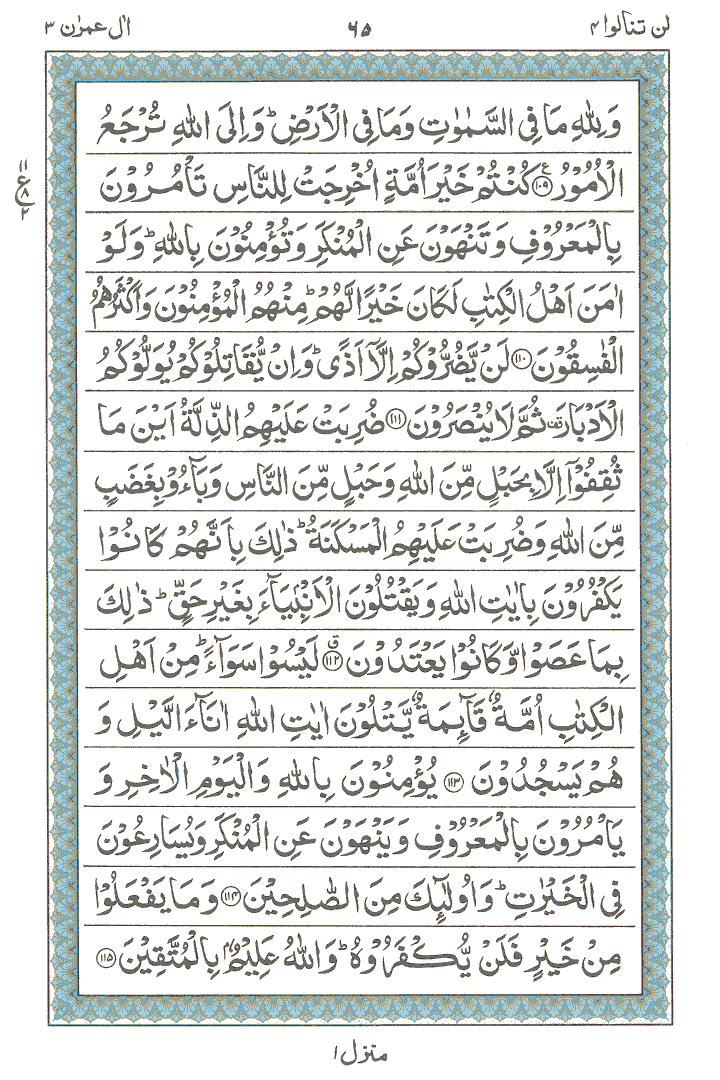 لن تنالوا ۴ ۶۵ اٰل عمرٰن ۳
وَ لِلّٰهِ مَا فِی السَّمٰوٰتِ وَ مَا فِی الْاَرْضِ ؕ وَ اِلَی اللّٰهِ تُرْجَعُ
الْاُمُوْرُ ﴿۱۰۹﴾ ع كُنْتُمْ خَیْرَ اُمَّةٍ اُخْرِجَتْ لِلنَّاسِ تَاْمُرُوْنَ
۱۱ ع ۸ ۲
بِالْمَعْرُوْفِ وَ تَنْهَوْنَ عَنِ الْمُنْكَرِ وَ تُؤْمِنُوْنَ بِاللّٰهِ ؕ وَ لَوْ
اٰمَنَ اَهْلُ الْكِتٰبِ لَكَانَ خَیْرًا لَّهُمْ ؕ مِنْهُمُ الْمُؤْمِنُوْنَ وَ اَكْثَرُهُمُ
الْفٰسِقُوْنَ ﴿۱۱۰﴾ لَنْ یَّضُرُّوْكُمْ اِلَّاۤ اَذًی ؕ وَ اِنْ یُّقَاتِلُوْكُمْ یُوَلُّوْكُمُ
الْاَدْبَارَ ۟ قف ثُمَّ لَا یُنْصَرُوْنَ ﴿۱۱۱﴾ ضُرِبَتْ عَلَیْهِمُ الذِّلَّةُ اَیْنَ مَا
ثُقِفُوْۤا اِلَّا بِحَبْلٍ مِّنَ اللّٰهِ وَ حَبْلٍ مِّنَ النَّاسِ وَ بَآءُوْ بِغَضَبٍ
مِّنَ اللّٰهِ وَ ضُرِبَتْ عَلَیْهِمُ الْمَسْكَنَةُ ؕ ذٰلِكَ بِاَنَّهُمْ كَانُوْا
یَكْفُرُوْنَ بِاٰیٰتِ اللّٰهِ وَ یَقْتُلُوْنَ الْاَنْۢبِیَآءَ بِغَیْرِ حَقٍّ ؕ ذٰلِكَ
بِمَا عَصَوْا وَّ كَانُوْا یَعْتَدُوْنَ ﴿۱۱۲﴾ ق لَیْسُوْا سَوَآءً ؕ مِنْ اَهْلِ
الْكِتٰبِ اُمَّةٌ قَآىِٕمَةٌ یَّتْلُوْنَ اٰیٰتِ اللّٰهِ اٰنَآءَ الَّیْلِ وَ
هُمْ یَسْجُدُوْنَ ﴿۱۱۳﴾ یُؤْمِنُوْنَ بِاللّٰهِ وَ الْیَوْمِ الْاٰخِرِ وَ
یَاْمُرُوْنَ بِالْمَعْرُوْفِ وَ یَنْهَوْنَ عَنِ الْمُنْكَرِ وَ یُسَارِعُوْنَ
فِی الْخَیْرٰتِ ؕ وَ اُولٰٓىِٕكَ مِنَ الصّٰلِحِیْنَ ﴿۱۱۴﴾ وَ مَا یَفْعَلُوْا
مِنْ خَیْرٍ فَلَنْ یُّكْفَرُوْهُ ؕ وَ اللّٰهُ عَلِیْمٌۢ بِالْمُتَّقِیْنَ ﴿۱۱۵﴾
منزل ۱